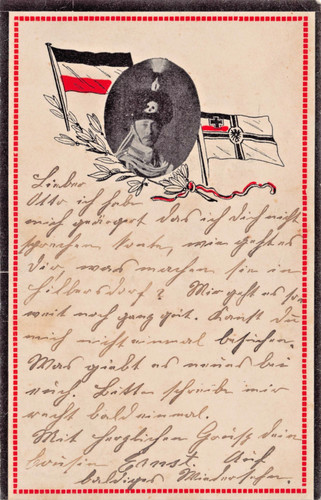 Lieber
Otto ich hab
mich geärgert das ich dich nicht
sprechen konte, wie geht es
dir, was machen sie in
Hilbersdorf? Mir geht es so
weit noch ganz gut. Kanst du
mich nicht einmal besuchen.
Was giebt es neues bei
euch. Bitten schreibe mir
recht bald einmal.
Mit herzlichen Grüss dein
Cousin Ernst. Auf
baldiges Wiedersehn.